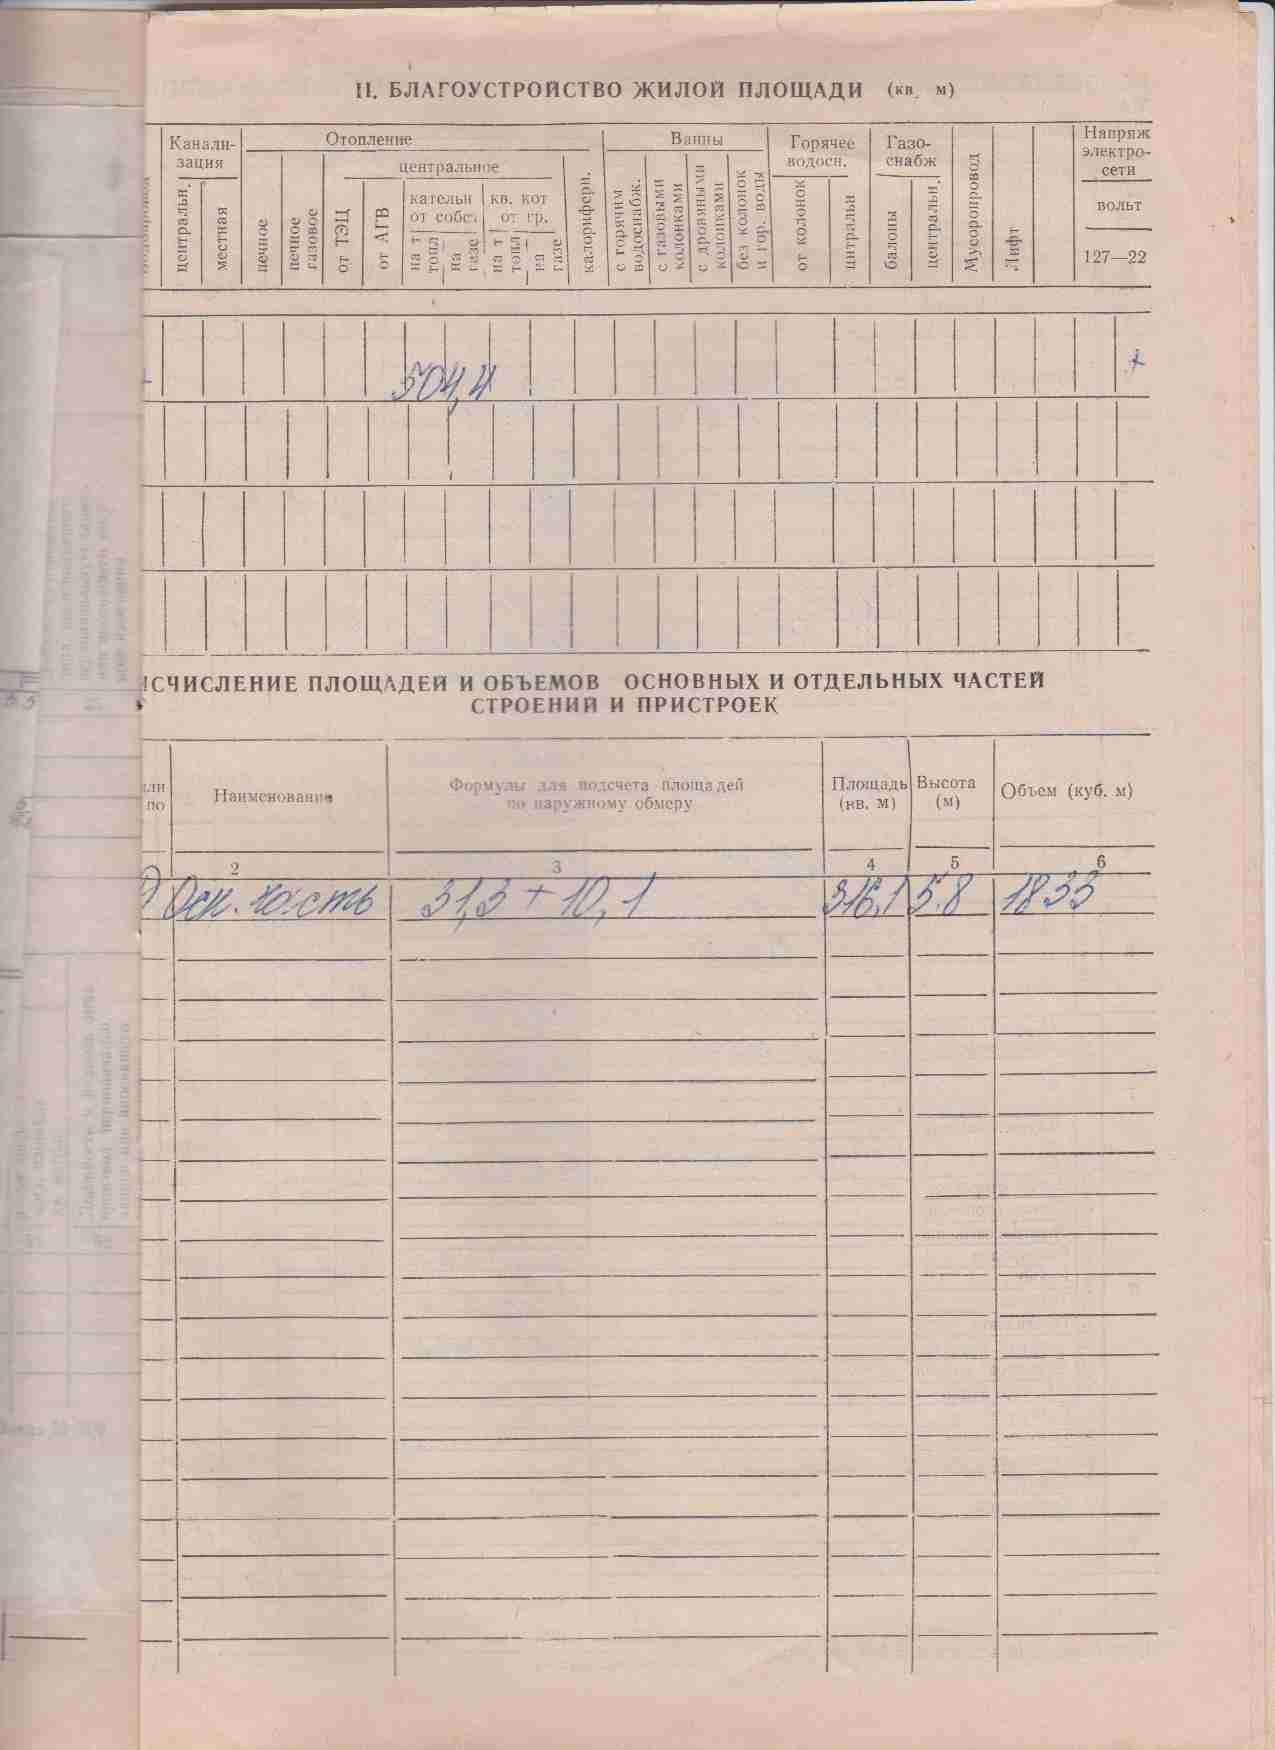 II. БЛАГОУСТРОЙСТВО ЖИЛОЙ ПЛОЩАДИ (кв. м)
Канали-
зация
центральн.
местная
Отопление
печное
печное
газовое
центральное
от ТЭЦ
от АГВ
кательн
от собст
на т
топл
на
газе
кв. кот
от гр.
на т
топл
на
газе
калорифери.
Ванны
с горячим
водоснабж.
с газовыми
колонками
с дровяными
колонками
без колонок
и гор. воды
Горячее
водосн.
от колонок
цнтральн
Газо-
снабж
балоны
центральн.
Мусоропровод
Лифт
Напряж
электро-
сети
вольт
127—22
504,4
+
ИСЧИСЛЕНИЕ ПЛОЩАДЕЙ И ОБЪЕМОВ ОСНОВНЫХ И ОТДЕЛЬНЫХ ЧАСТЕЙ
СТРОЕНИЙ И ПРИСТРОЕК
или
по
Наименование
Формулы для подсчета площадей
по наружному обмеру
Площадь
(кв. м)
Высота
(м)
Объем (куб. м)
2 3 4 5 6
Осн. часть 31,3 + 10,1 316,1 5.8 1833